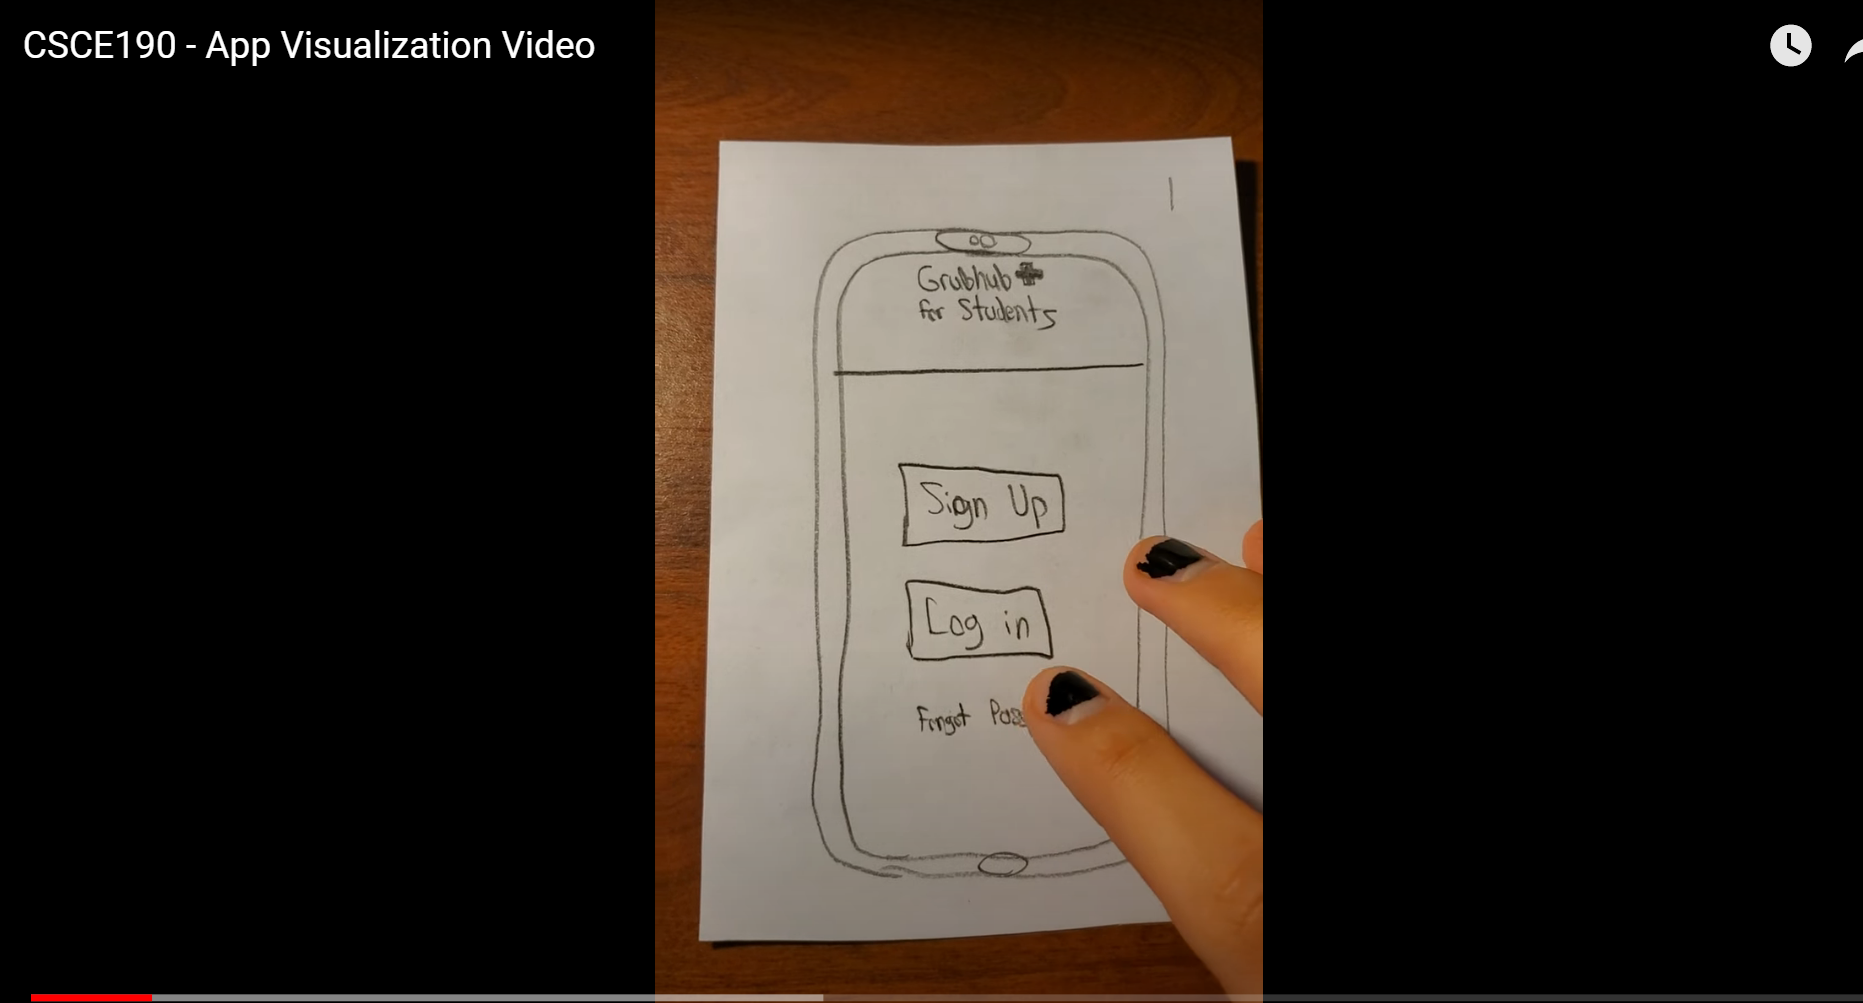 CSCE190 - App Visualization Video
1
Grubhub+
for Students
Sign Up
Log in
Forgot Pass